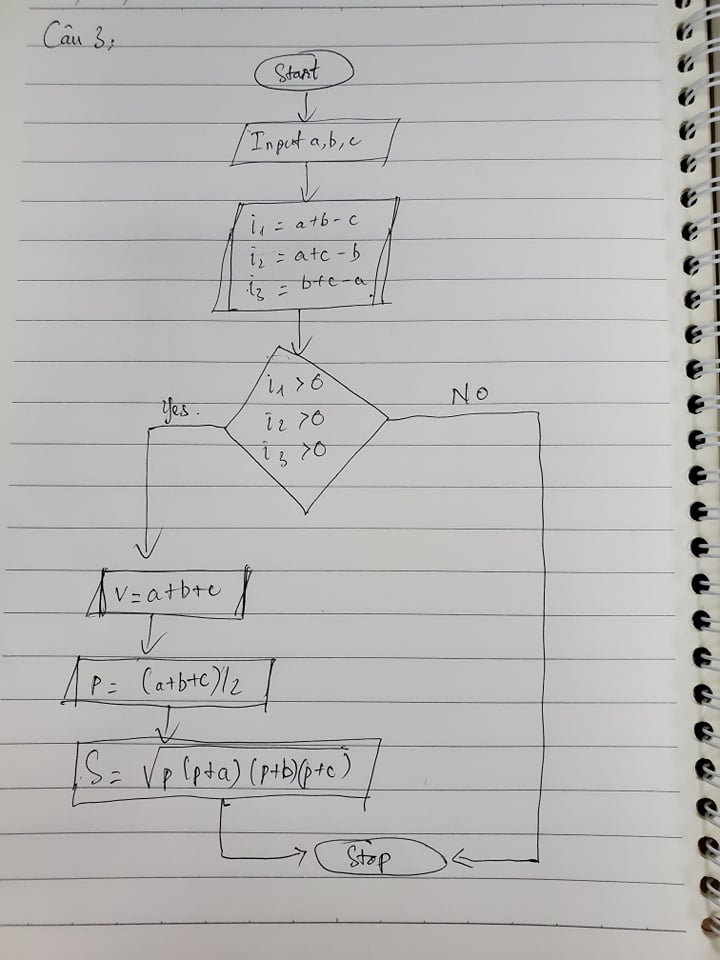 Câu 3:
Start
Input a, b, c
i₁ = a+b-c
i₂ = a+c-b
i₃ = b+c-a
i₁ >0
i₂ >0
i₃ >0
Yes.
NO
V=a+b+c
P= (a+b+c)/2
S= √p (p+a) (p+b)(p+c)
Stop